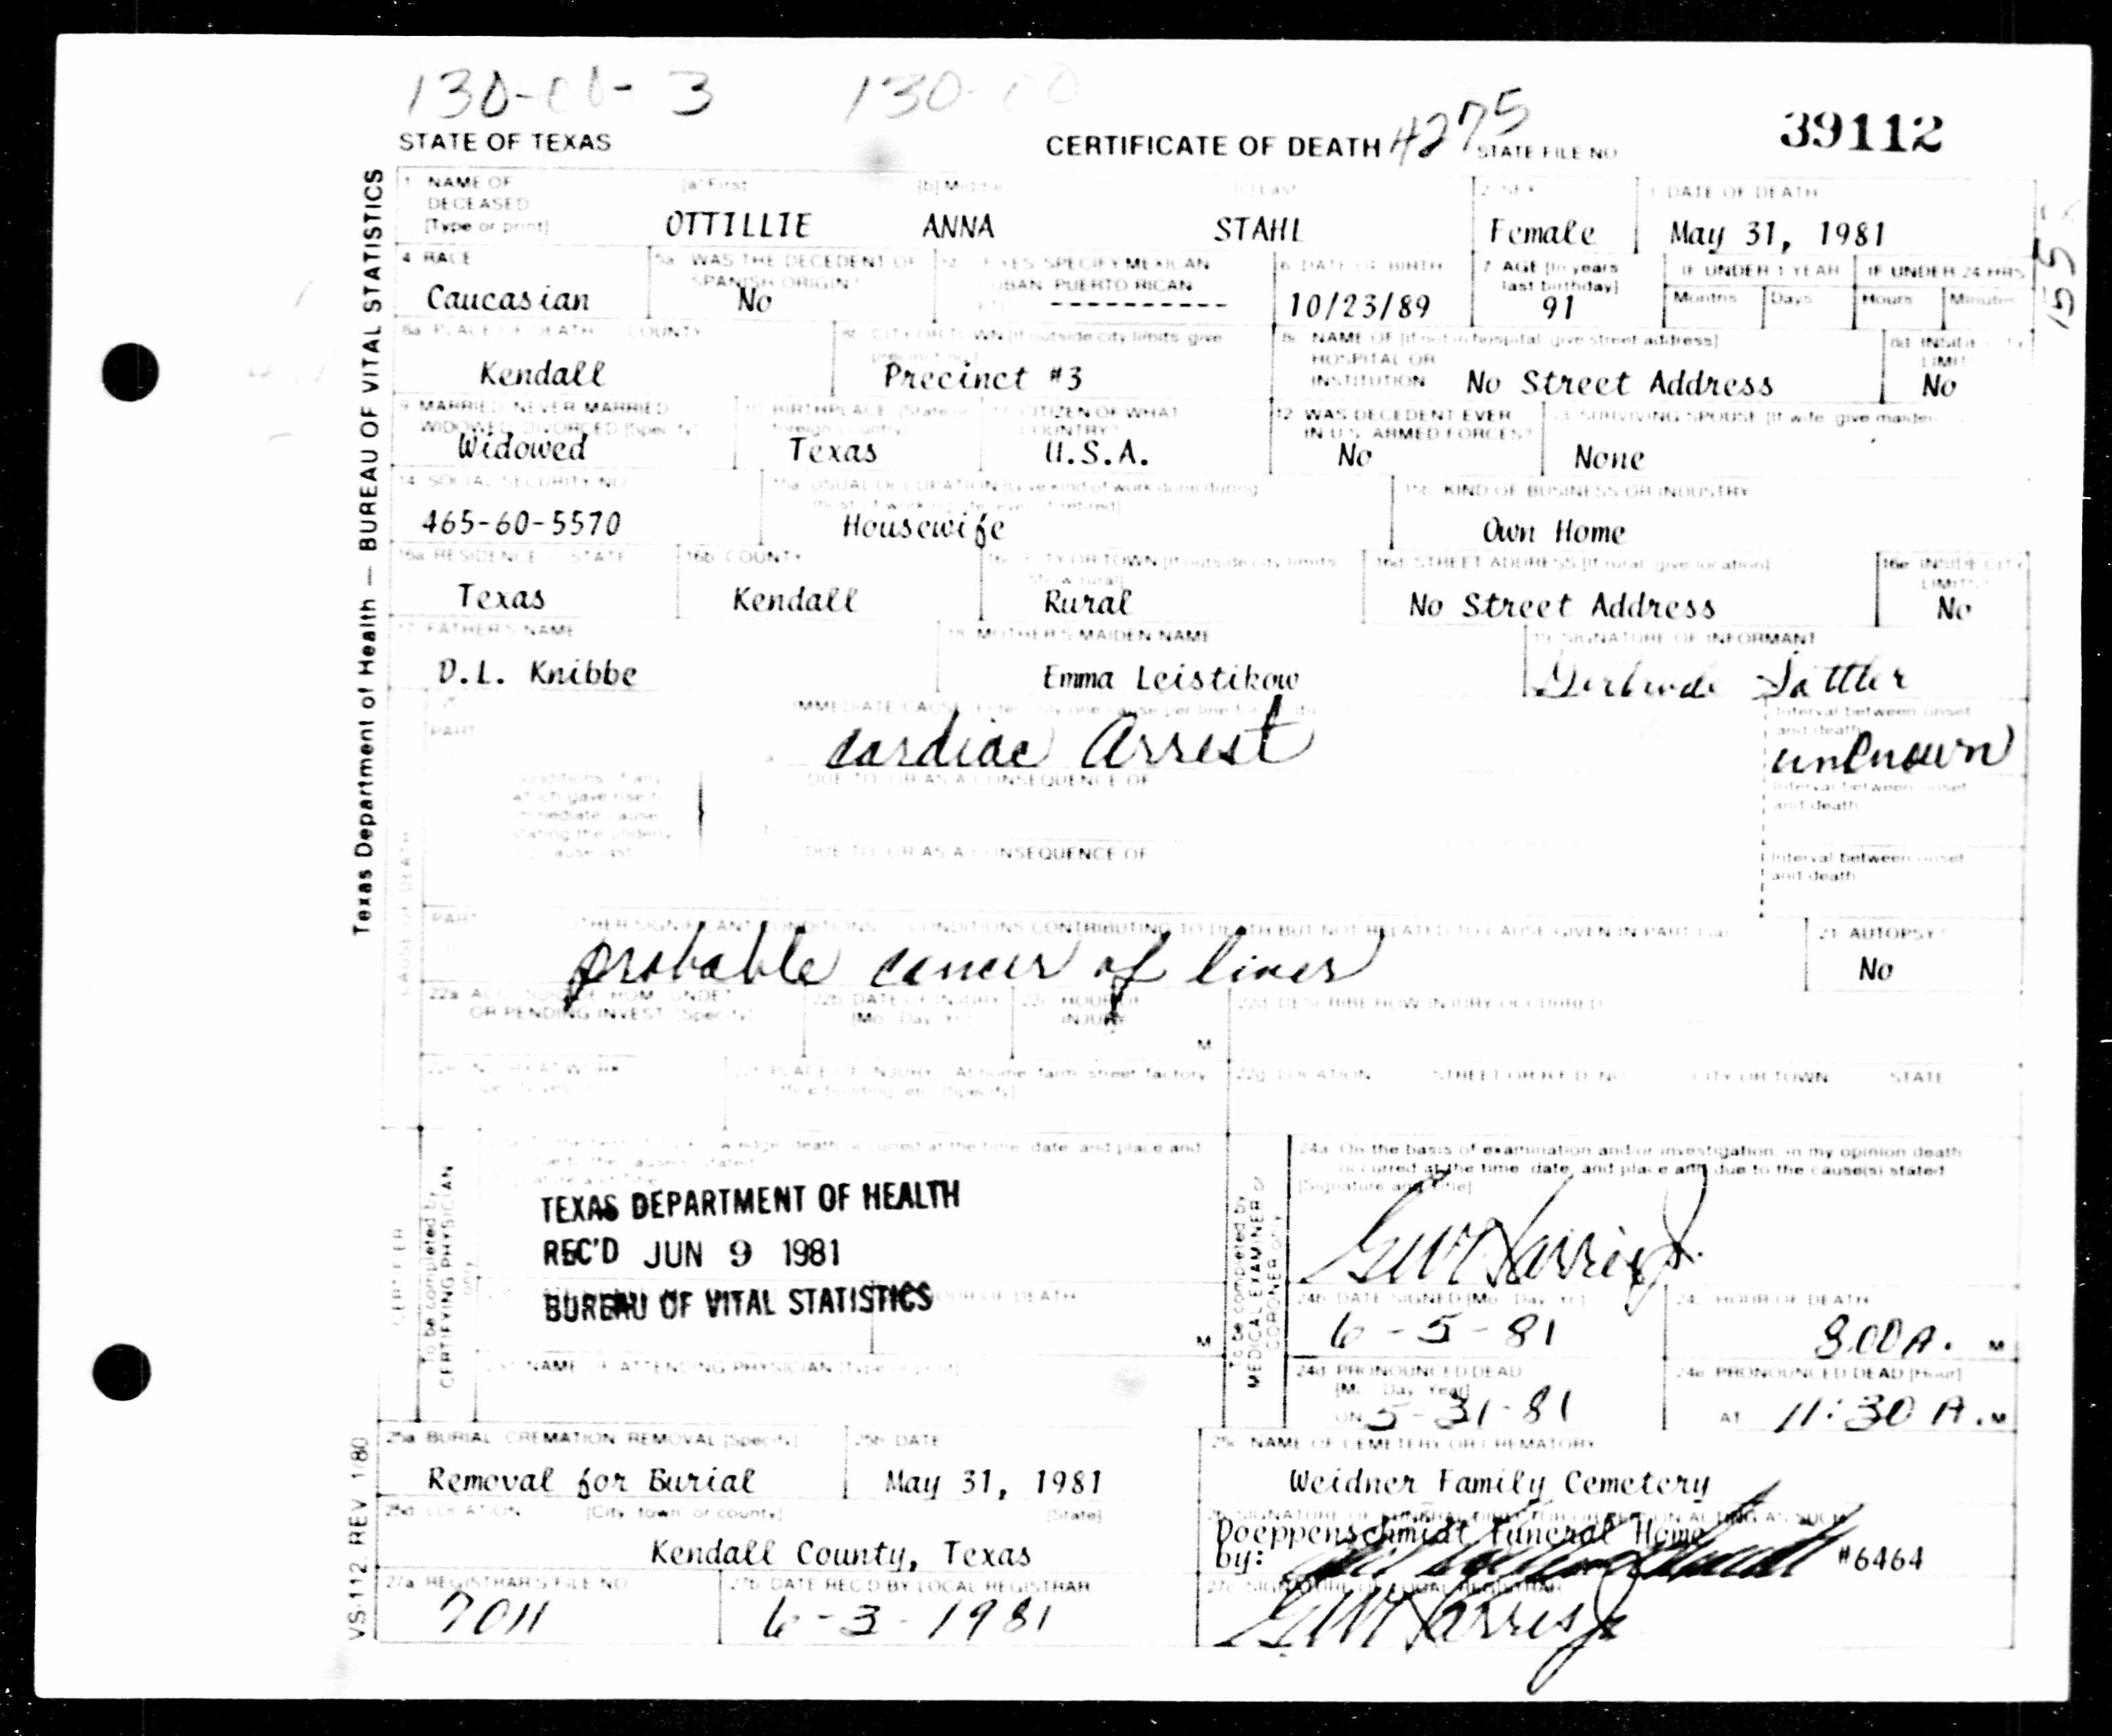 130- 3 130-
STATE OF TEXAS CERTIFICATE OF DEATH 4275 STATE FILE NO 39112
Texas Department of Health — BUREAU OF VITAL STATISTICS
1 NAME OF DECEASED [Type or print] [a] First [b] Middle Last 2 SEX DATE OF DEATH
OTTILLIE ANNA STAHL Female May 31, 1981
155
4 RACE 5a WAS THE DECEDENT OF SPANISH ORIGIN? IF YES, SPECIFY MEXICAN CUBAN PUERTO RICAN 6 DATE OF BIRTH 7 AGE [In years last birthday] IF UNDER 1 YEAR IF UNDER 24 HRS
Months Days Hours Minutes
Caucasian No ---------- 10/23/89 91
8a PLACE OF DEATH COUNTY 8b CITY OR TOWN [If outside city limits, give precinct no] 8c NAME OF [If not in hospital, give street address] HOSPITAL OR INSTITUTION 8d INSIDE CITY LIMITS
Kendall Precinct #3 No Street Address No
9 MARRIED NEVER MARRIED WIDOWED DIVORCED [Specify] 10 BIRTHPLACE [State or foreign country] 11 CITIZEN OF WHAT COUNTRY? 12 WAS DECEDENT EVER IN U.S. ARMED FORCES? 13 SURVIVING SPOUSE [If wife, give maiden
Widowed Texas U.S.A. No None
14 SOCIAL SECURITY NO 15a USUAL OCCUPATION [Give kind of work done during most of working life, even if retired] 15b KIND OF BUSINESS OR INDUSTRY
465-60-5570 Housewife Own Home
16a RESIDENCE STATE 16b COUNTY 16c CITY OR TOWN [If outside city limits show rural] 16d STREET ADDRESS [If rural, give location] 16e INSIDE CITY LIMITS?
Texas Kendall Rural No Street Address No
17 FATHER'S NAME 18 MOTHER'S MAIDEN NAME 19 SIGNATURE OF INFORMANT
D.L. Knibbe Emma Leistikow Gertrude Sattler
PART IMMEDIATE CAUSE [Enter only one cause per line for Interval between onset and death
cardiac Arrest unknown
Conditions, if any which gave rise to immediate cause stating the underlying cause last
DUE TO, OR AS A CONSEQUENCE OF Interval between onset and death
DUE TO, OR AS A CONSEQUENCE OF Interval between onset and death
CAUSE OF DEATH
PART OTHER SIGNIFICANT CONDITIONS CONDITIONS CONTRIBUTING TO DEATH BUT NOT RELATED TO CAUSE GIVEN IN PART I [a] 21 AUTOPSY?
probable cancer of liver No
22a ACC, SUICIDE, HOM, UNDET OR PENDING INVEST [Specify] 22b DATE OF INJURY [Mo Day Yr] 22c HOUR OF INJURY M 22d DESCRIBE HOW INJURY OCCURRED
22e INJURY AT WORK 22f PLACE OF INJURY At home, farm, street, factory office building, etc [Specify] 22g LOCATION STREET OR R.F.D. NO CITY OR TOWN STATE
CERTIFIER
To be completed by CERTIFYING PHYSICIAN only
death occurred at the time date and place and due to the cause(s) stated
TEXAS DEPARTMENT OF HEALTH
REC'D JUN 9 1981
BUREAU OF VITAL STATISTICS
HOUR OF DEATH M
NAME OF ATTENDING PHYSICIAN [Type or print]
To be completed by MEDICAL EXAMINER or CORONER only
24a On the basis of examination and/or investigation, in my opinion death occurred at the time, date, and place and due to the cause(s) stated
[Signature and Title]
GW Harries Jr.
24b DATE SIGNED [Mo Day Yr] 24c HOUR OF DEATH
6-5-81 8:00 A. M
24d PRONOUNCED DEAD [Mo Day Year] 24e PRONOUNCED DEAD [Hour]
ON 5-31-81 AT 11:30 A. M
VS-112 REV 1/80
25a BURIAL CREMATION REMOVAL [Specify] 25b DATE 25c NAME OF CEMETERY OR CREMATORY
Removal for Burial May 31, 1981 Weidner Family Cemetery
25d LOCATION [City, town, or county] [State] 26 SIGNATURE OF FUNERAL DIRECTOR OR PERSON ACTING AS SUCH
Kendall County, Texas Doeppenschmidt Funeral Home
by: #6464
27a REGISTRAR'S FILE NO 27b DATE REC'D BY LOCAL REGISTRAR 27c SIGNATURE OF LOCAL REGISTRAR
7011 6-3-1981 GW Harries Jr